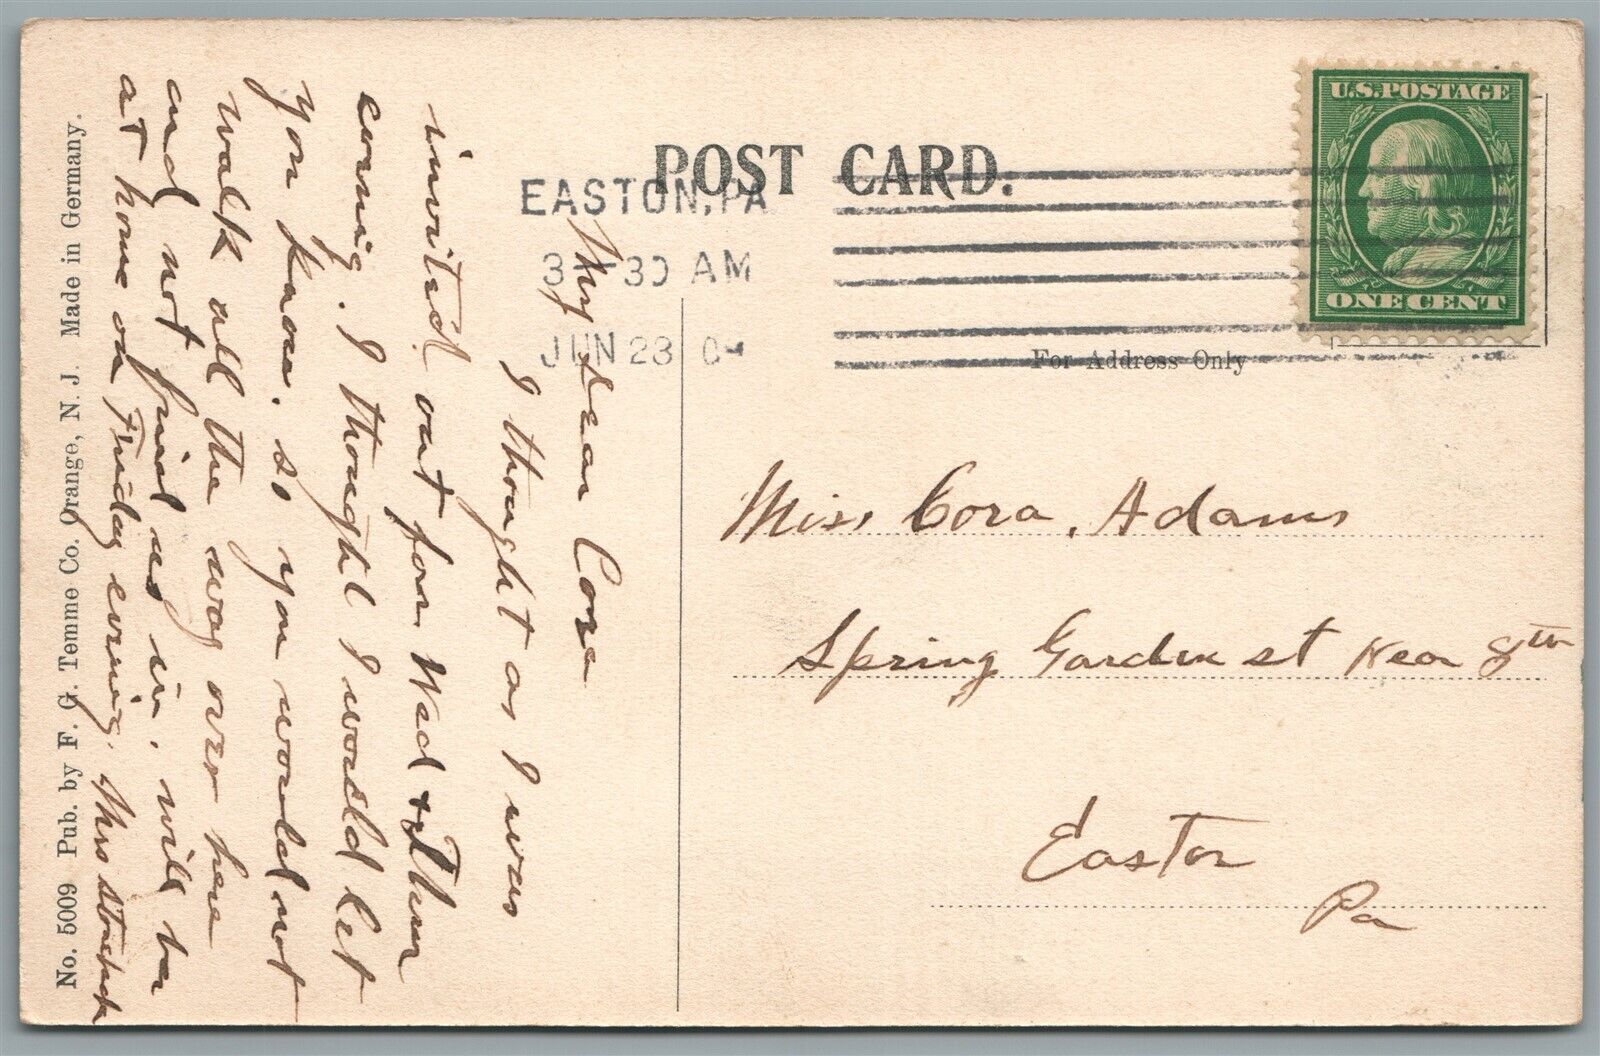 POST CARD.
U.S. POSTAGE
ONE CENT
EASTON, PA
3-30 AM
JUN 23
For Address Only
My dear Cora
I thought as I was
invited out for Wed + Thur
evening. I thought I would let
you know. so you would not
walk all the way over here
and not find us in. will be
at home on Friday evening. Mrs
Miss Cora, Adams
Spring Garden st Near 8th
Easton
Pa
No. 5009 Pub. by F. G. Temme Co. Orange, N. J. Made in Germany.